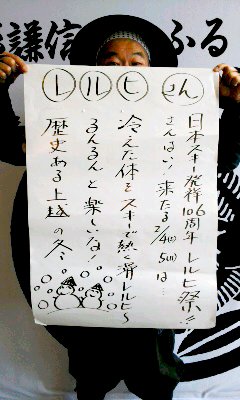 謙信 ふる
レルヒさん
日本スキー発祥106周年 レルヒ祭!!
さんはい!来たる2/4(土) 5(日)は…
冷えた体をスキーで熱く滑レルヒ〜
るんるんと楽しいな!
歴史ある上越の冬